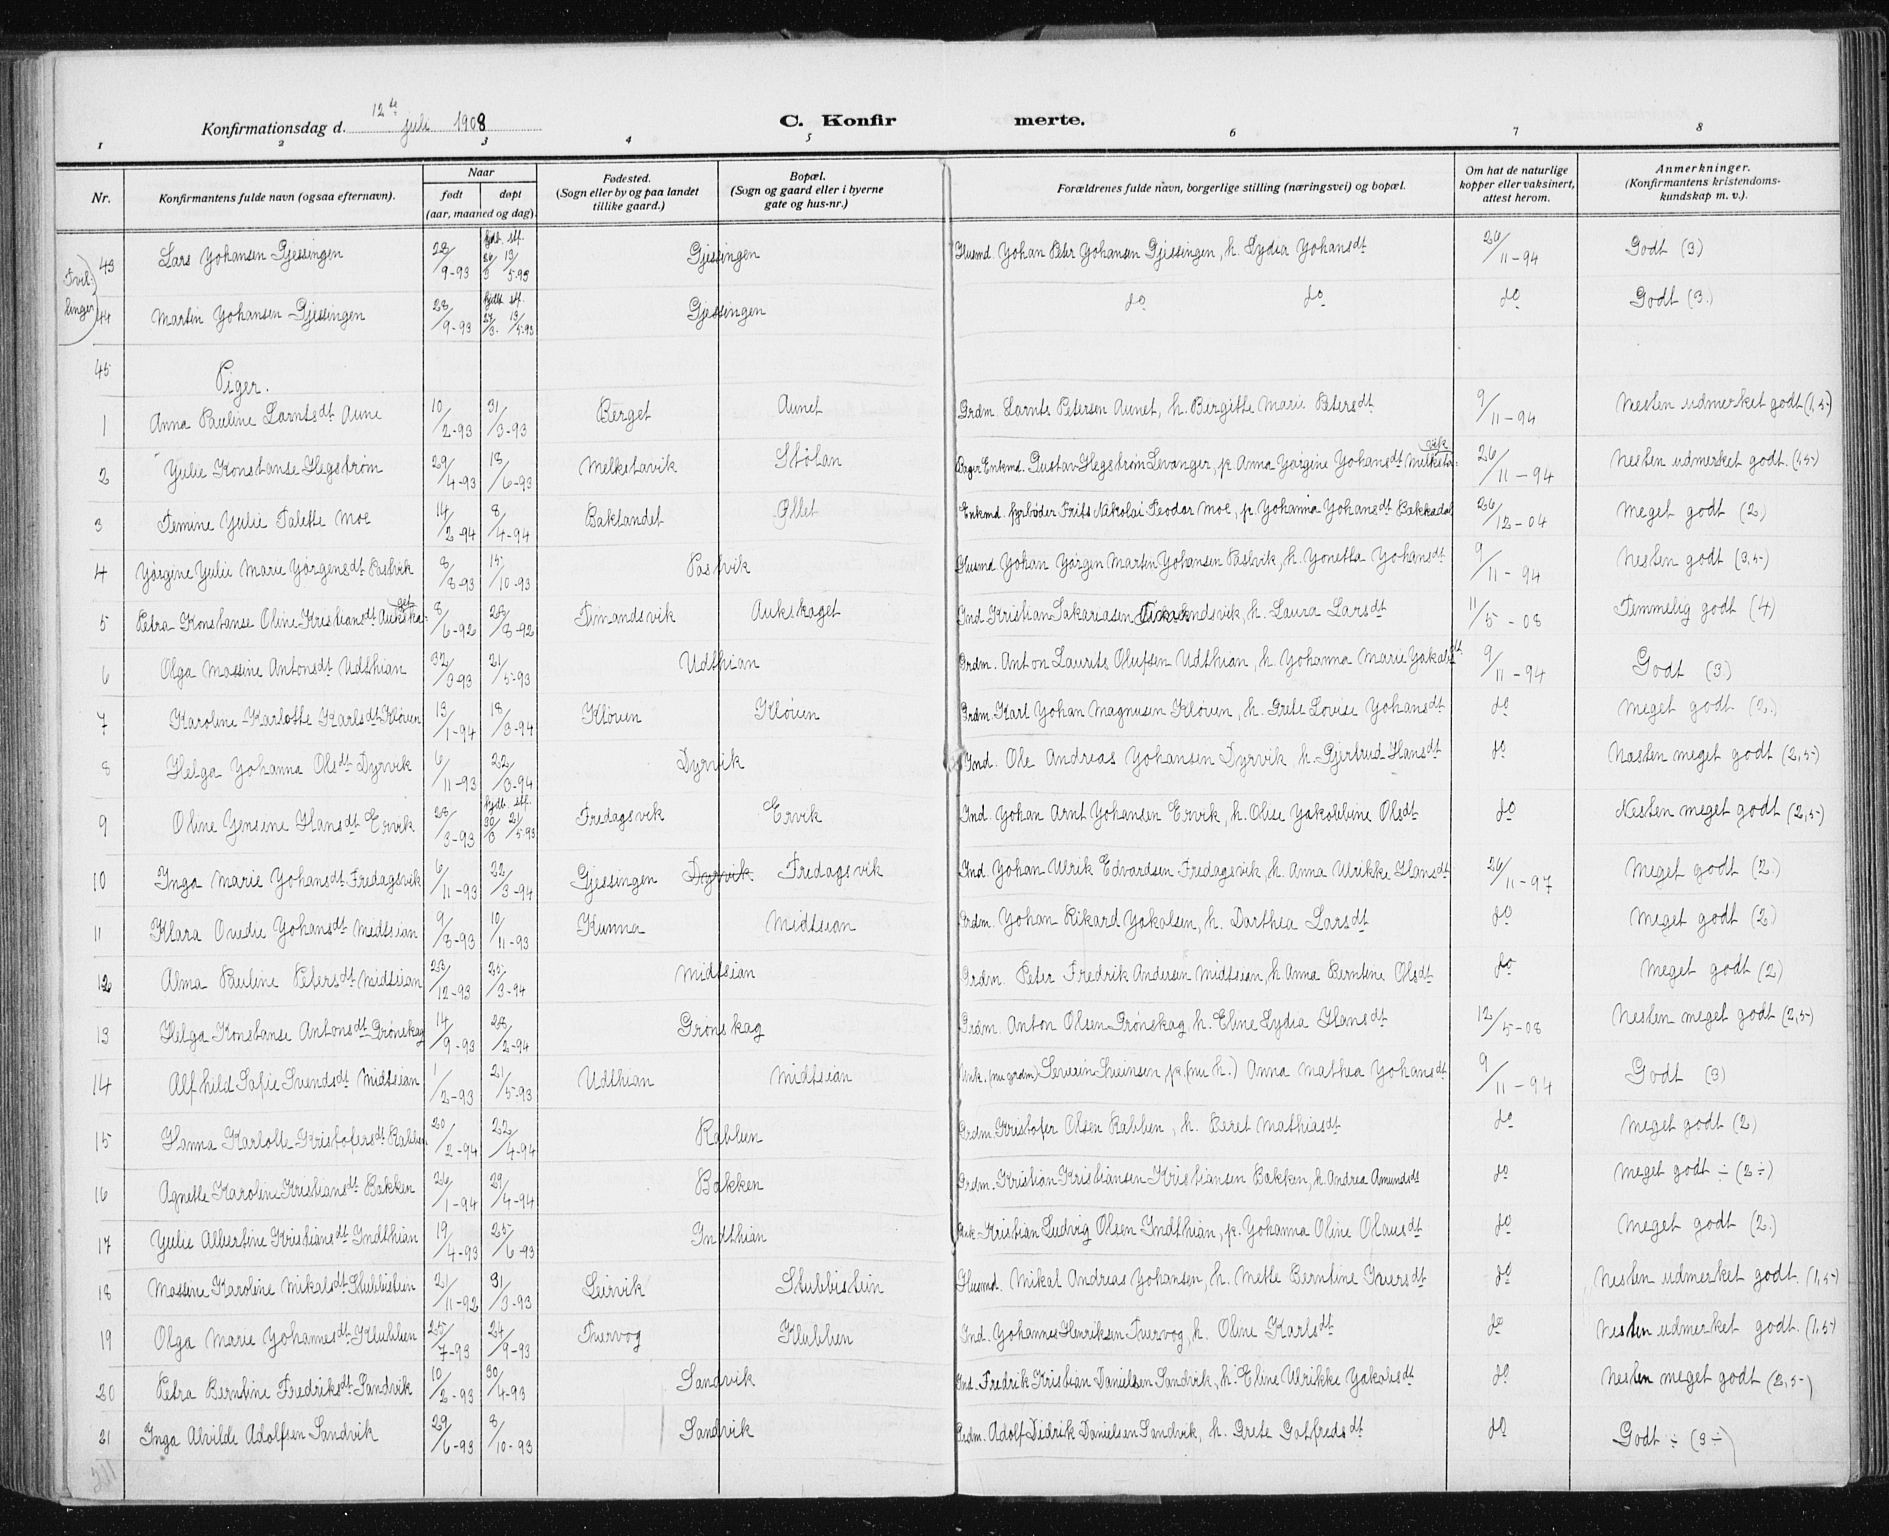 Konfirmationsdag d. 12te juli 1908
C. Konfirmerte.
1 2 3 4 5 6 7 8
Nr. Konfirmantens fulde navn (ogsaa efternavn). Naar født døpt (aar, maaned og dag) Fødested. (Sogn eller by og paa landet tillike gaard.) Bopæl. (Sogn og gaard eller i byerne gate og hus-nr.) Forældrenes fulde navn, borgerlige stilling (næringsvei) og bopæl. Om hat de naturlige kopper eller vaksinert, attest herom. Anmerkninger. (Konfirmantens kristendomskundskap m. v.).
Tvillinger
43 Lars Johansen Gjessingen 28/9-93 hjdb. stf. 13/5-93 Gjessingen Husmd. Johan Peter Johansen Gjessingen, h. Lydia Johansdt 26/11-94 Godt (3)
44 Martin Johansen Gjessingen 28/9-93 hjdb. stf. 13/5-93 Gjessingen do do do Godt (3)
45
Piger.
1 Anna Pauline Larntsdt Aune 10/2-93 31/3-93 Berget Aunet Grdm. Larnts Petersen Aunet, h. Bergitte Marie Petersdt 9/11-94 Nesten udmerket godt (1,5-)
2 Julie Konstanse Hegstrøm 29/4-93 18/6-93 Melkstavik Stølan Bager Enkmd. Gustav Hegstrøm Levanger, p. Anna Jørgine Johansdt Melkstavik 26/11-94 Nesten udmerket godt. (1,5-)
3 Femine Julie Talette Moe 14/2-94 8/4-94 Baklandet Øllet Enkmd. Frits Nikolai Teodor Moe, p. Johanna Johansdt Bakkadal 26/12-04 Meget godt (2)
4 Jørgine Julie Marie Jørgensdt Pasvik 8/8-93 15/10-93 Pasvik Husmd Johan Jørgen Martin Johansen Pasvik, h. Jonetta Johansdt 9/11-94 Nesten godt (3,5-)
5 Petra Konstanse Oline Kristiansdt Aukskaget 8/6-92 28/8-92 Timandsvik Aukskaget Ind Kristian Sakariasen Timandsvik, h. Laura Larsdt 11/5-08 Temmelig godt (4)
6 Olga Massine Antonsdt Udthian 32/3-93 21/5-93 Udthian Grdm. Anton Laurits Olufsen Udthian, h. Johanna Marie Jakobsdt 9/11-94 Godt (3)
7 Karoline Karlotte Karlsdt Kløven 13/1-94 18/3-94 Kløven Kløven Grdm. Karl Johan Magnusen Kløven, h. Grete Lovise Johansdt do Meget godt (2.)
8 Helga Johanna Olsdt Dyrvik 6/11-93 22/3-94 Dyrvik Ind. Ole Andreas Johansen Dyrvik h. Gjertrud Hansdt do Nasten meget godt (2,5-)
9 Oline Jensine Hansdt Ervik 28/3-93 hjdb. stf. 30/3 21/5-93 Fredagsvik Ervik Ind. Johan Arnt Johansen Ervik, h. Olise Jakobbine Olsdt do Nesten meget godt (2,5-)
10 Inga Marie Johansdt Fredagsvik 6/11-93 22/3-94 Gjessingen Dyrvik Fredagsvik Ind. Johan Ulrik Edvardsen Fredagsvik, h. Anna Ulrikke Hansdt 26/11-97 Meget godt (2.)
11 Klara Ovedie Johansdt Medtsian 9/8-93 10/11-93 Kunna Midtsian Grdm. Johan Rikard Jakobsen, h. Darthea Larsdt do Meget godt (2)
12 Alma Pauline Petersdt Midtsian 23/12-93 25/3-94 Midtsian Grdm. Peter Fredrik Andersen Midtsian, h Anna Berntine Olsdt do Meget godt (2)
13 Helga Konstanse Antonsdt Grønskag 14/9-93 28/2-94 Grønskag Grdm. Anton Olsen Grønskag h. Eline Lydia Hansdt 12/5-08 Nesten meget godt (2,5-)
14 Alfhild Sofie Svendsdt Midtsian 1/2-93 21/5-93 Udthian Midtsian Unk. (nu grdm.) Severin Sveinsen p. (nu h.) Anna Mathea Johansdt 9/11-94 Godt (3)
15 Hanna Karlotte Kristofersdt Rabben 20/2-94 22/4-94 Rabben Grdm. Kristofer Olsen Rabben, h. Beret Mathiasdt do Meget godt (2)
16 Agnette Karoline Kristiansdt Bakken 26/1-94 29/4-94 Bakken Grdm. Kristian Kristiansen Kristiansen Bakken, h. Andrea Amundsdt do Meget godt ÷ (2÷)
17 Julie Albertine Kristiansdt Indthian 19/4-93 25/6-93 Indthian Unk. Kristian Ludvig Olsen Indthian, p. Johanna Oline Olausdt do Meget godt (2.)
18 Massine Karoline Mikalsdt Stubbistein 21/11-92 31/3-93 Leirvik Stubbistein Husmd. Mikal Andreas Johansen, h. Mette Berntine Iversdt do Nesten udmerket godt. (1,5-)
19 Olga Marie Johannesdt Klubben 25/7-93 24/9-93 Tvervog Klubben Ind. Johannes Henriksen Tvervog, h. Oline Karlsdt do Nesten udmerket godt. (1,5-)
20 Petra Berntine Fredriksdt Sandvik 10/2-93 30/4-93 Sandvik Ind. Fredrik Kristian Danielsen Sandvik, h. Eline Ulrikke Jakobsdt do Nesten meget godt (2,5-)
21 Inga Alvilde Adolfsen Sandvik 29/6-93 8/10-93 Sandvik Grdm. Adolf Didrik Danielsen Sandvik, h. Grete Gotfredsdt do Godt ÷ (3÷)